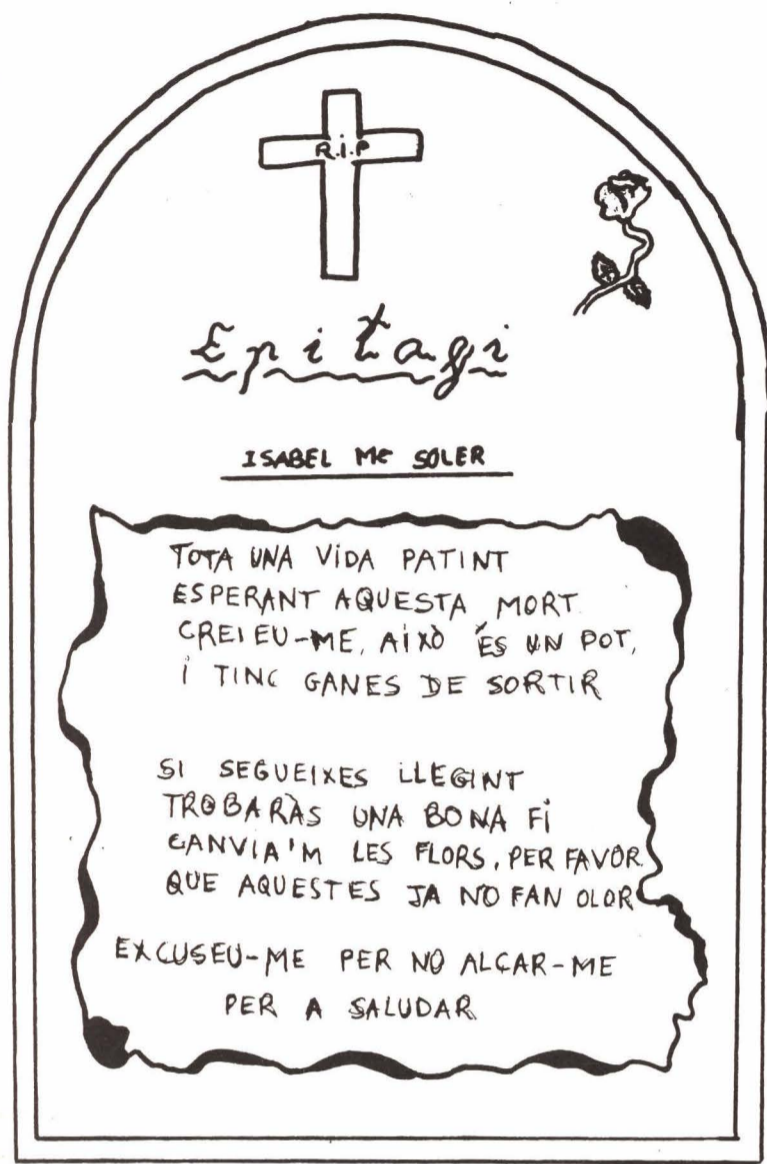 R.i.P
Epitafi
ISABEL Mª SOLER
TOTA UNA ViDA PATINT
ESPERANT AQUESTA MORT.
CREIEU-ME, AiXÒ ÉS UN POT,
i TINC GANES DE SORTIR
SI SEGUEIXES LLEGINT
TROBARÀS UNA BONA Fi
CANVIA'M LES FLORS, PER FAVOR.
QUE AQUESTES JA NO FAN OLOR
EXCUSEU-ME PER NO ALCAR-ME
PER A SALUDAR